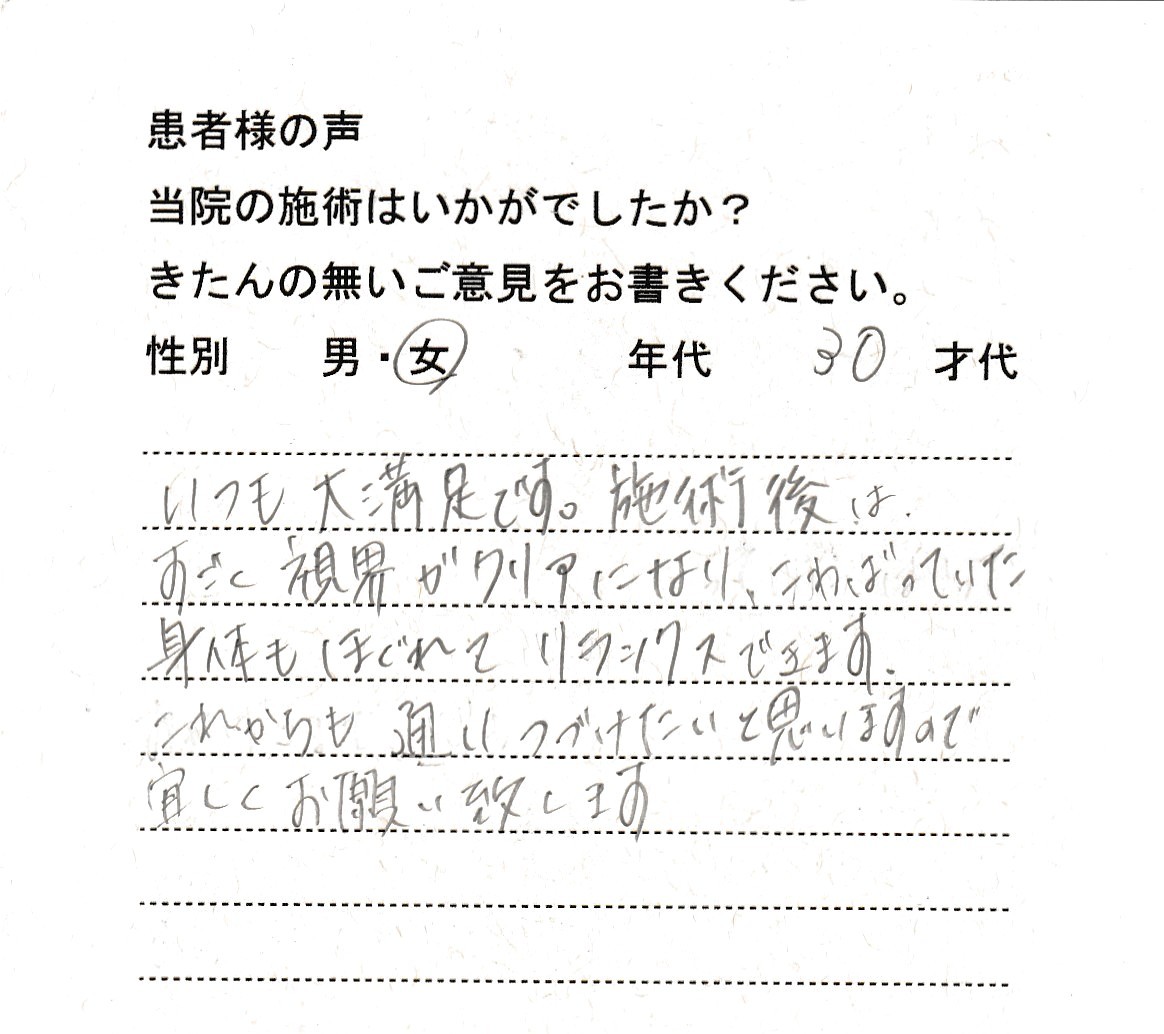 患者様の声
当院の施術はいかがでしたか？
きたんの無いご意見をお書きください。
性別 男・女 年代 30 才代
いつも大満足です。施術後は、
すごく視界がクリアになり、こわばっていた
身体もほぐれてリラックスできます。
これからも通いつづけたいと思いますので
宜しくお願い致します